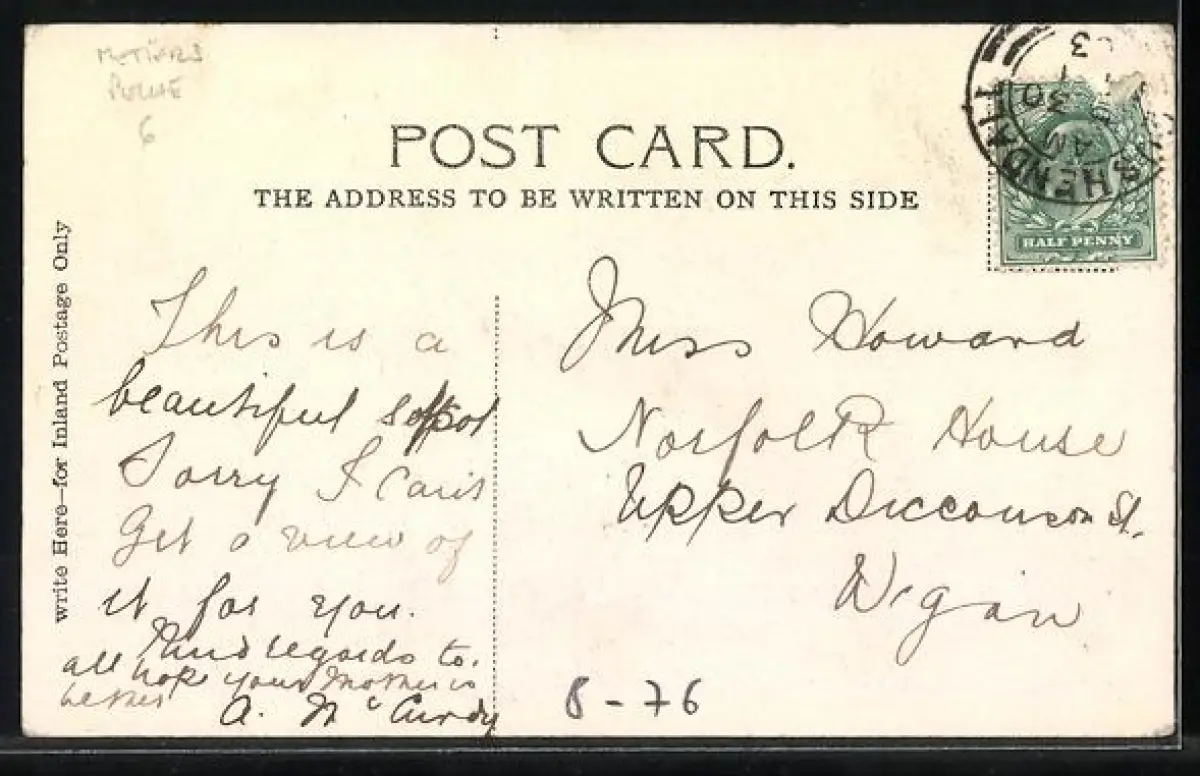 MOTIVRS
6
POST CARD.
THE ADDRESS TO BE WRITTEN ON THIS SIDE
write Here—for Inland Postage Only
HALF PENNY
30
AM
3
This is a
beautiful spot
Sorry I cant
Get a view of
it for you.
Kind regards to.
all hope your Mother is
better
A. McCurdy
Miss Howard
Norfolk House
Upper Dicconson St.
Wigan
8-76